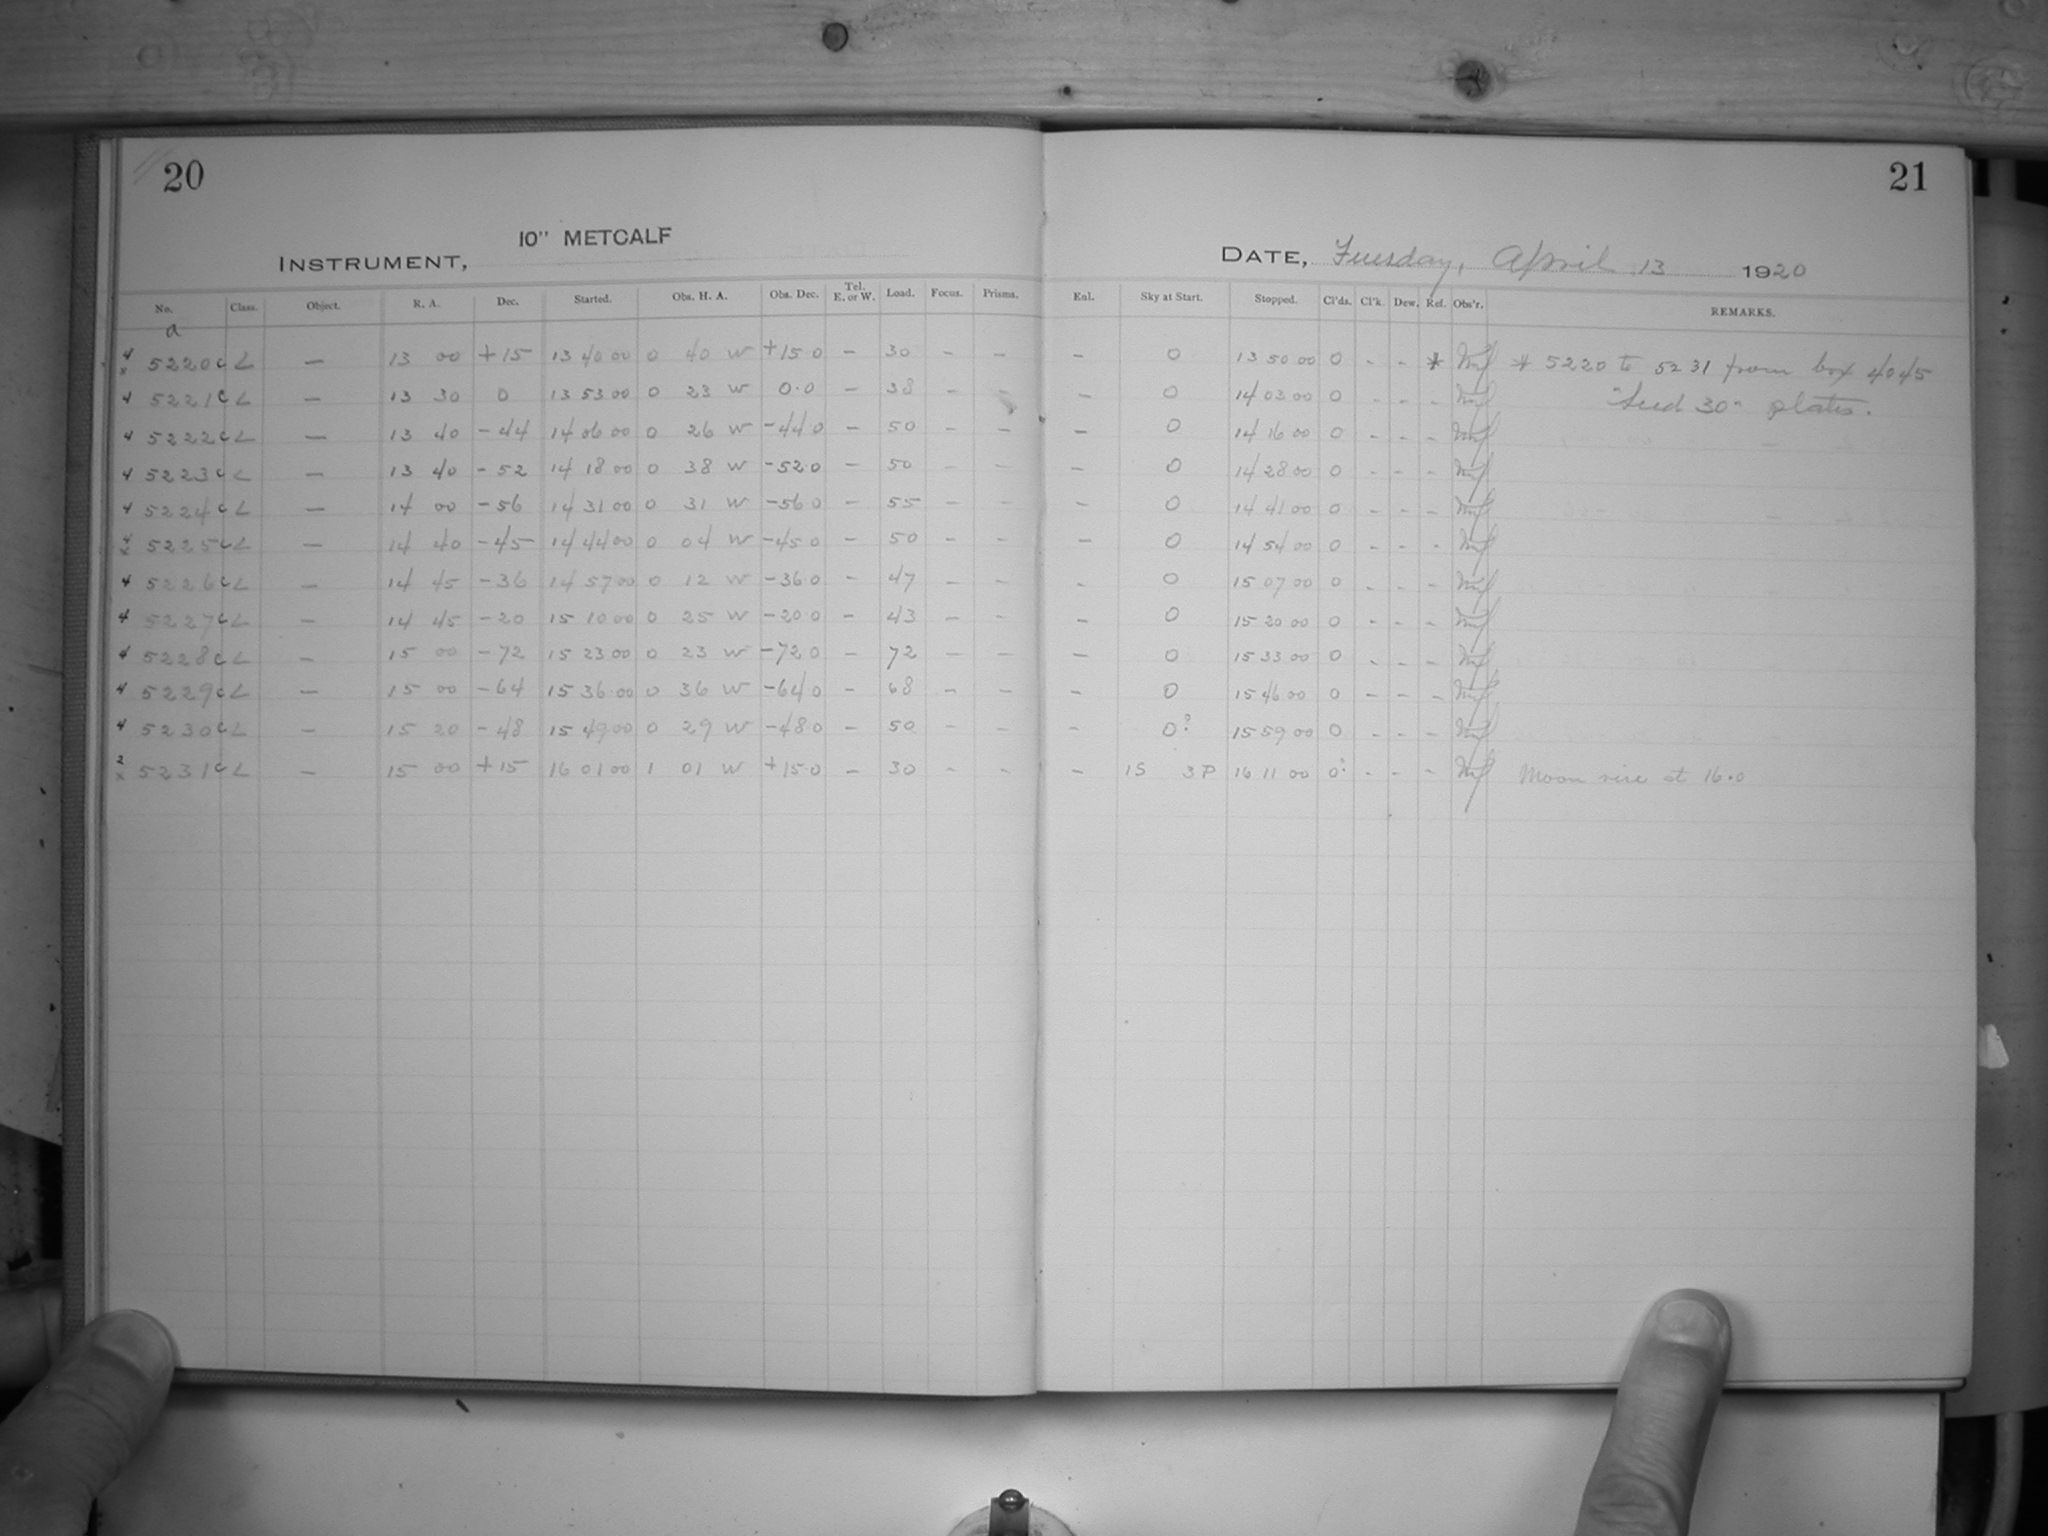 20
10" METCALF
INSTRUMENT,
No. Class. Object. R. A. Dec. Started. Obs. H. A. Obs. Dec. Tel. E. or W. Load. Focus. Prisms.
a
4 x 5220 c L — 13 00 +15 13 40 00 0 40 W +15 0 — 30 — —
4 5221 c L — 13 30 0 13 53 00 0 23 W 0.0 — 38 — —
4 5222 c L — 13 40 -44 14 06 00 0 26 W -44 0 — 50 — —
4 5223 c L — 13 40 -52 14 18 00 0 38 W -52.0 — 50 — —
4 5224 c L — 14 00 -56 14 31 00 0 31 W -56 0 — 55 — —
4 x 5225 c L — 14 40 -45 14 44 00 0 04 W -45 0 — 50 — —
4 5226 c L — 14 45 -36 14 57 00 0 12 W -36.0 — 47 — —
4 5227 c L — 14 45 -20 15 10 00 0 25 W -20 0 — 43 — —
4 5228 c L — 15 00 -72 15 23 00 0 23 W -72 0 — 72 — —
4 5229 c L — 15 00 -64 15 36 00 0 36 W -64 0 — 68 — —
4 5230 c L — 15 20 -48 15 49 00 0 29 W -48.0 — 50 — —
2 x 5231 c L — 15 00 +15 16 01 00 1 01 W +15.0 — 30 — —
21
DATE, Tuesday, April 13 1920
Enl. Sky at Start. Stopped. Cl'ds. Cl'k. Dew. Ref. Obs'r. REMARKS.
— 0 13 50 00 0 - - * * 5220 to 5231 from box 4045
— 0 14 03 00 0 - - - "Seed 30" plates.
— 0 14 16 00 0 - - -
— 0 14 28 00 0 - - -
— 0 14 41 00 0 - - -
— 0 14 54 00 0 - - -
- 0 15 07 00 0 - - -
— 0 15 20 00 0 - - -
— 0 15 33 00 0 - - -
— 0 15 46 00 0 - - -
— 0? 15 59 00 0 - - -
— 1S 3P 16 11 00 0: - - - Moon rise at 16.0